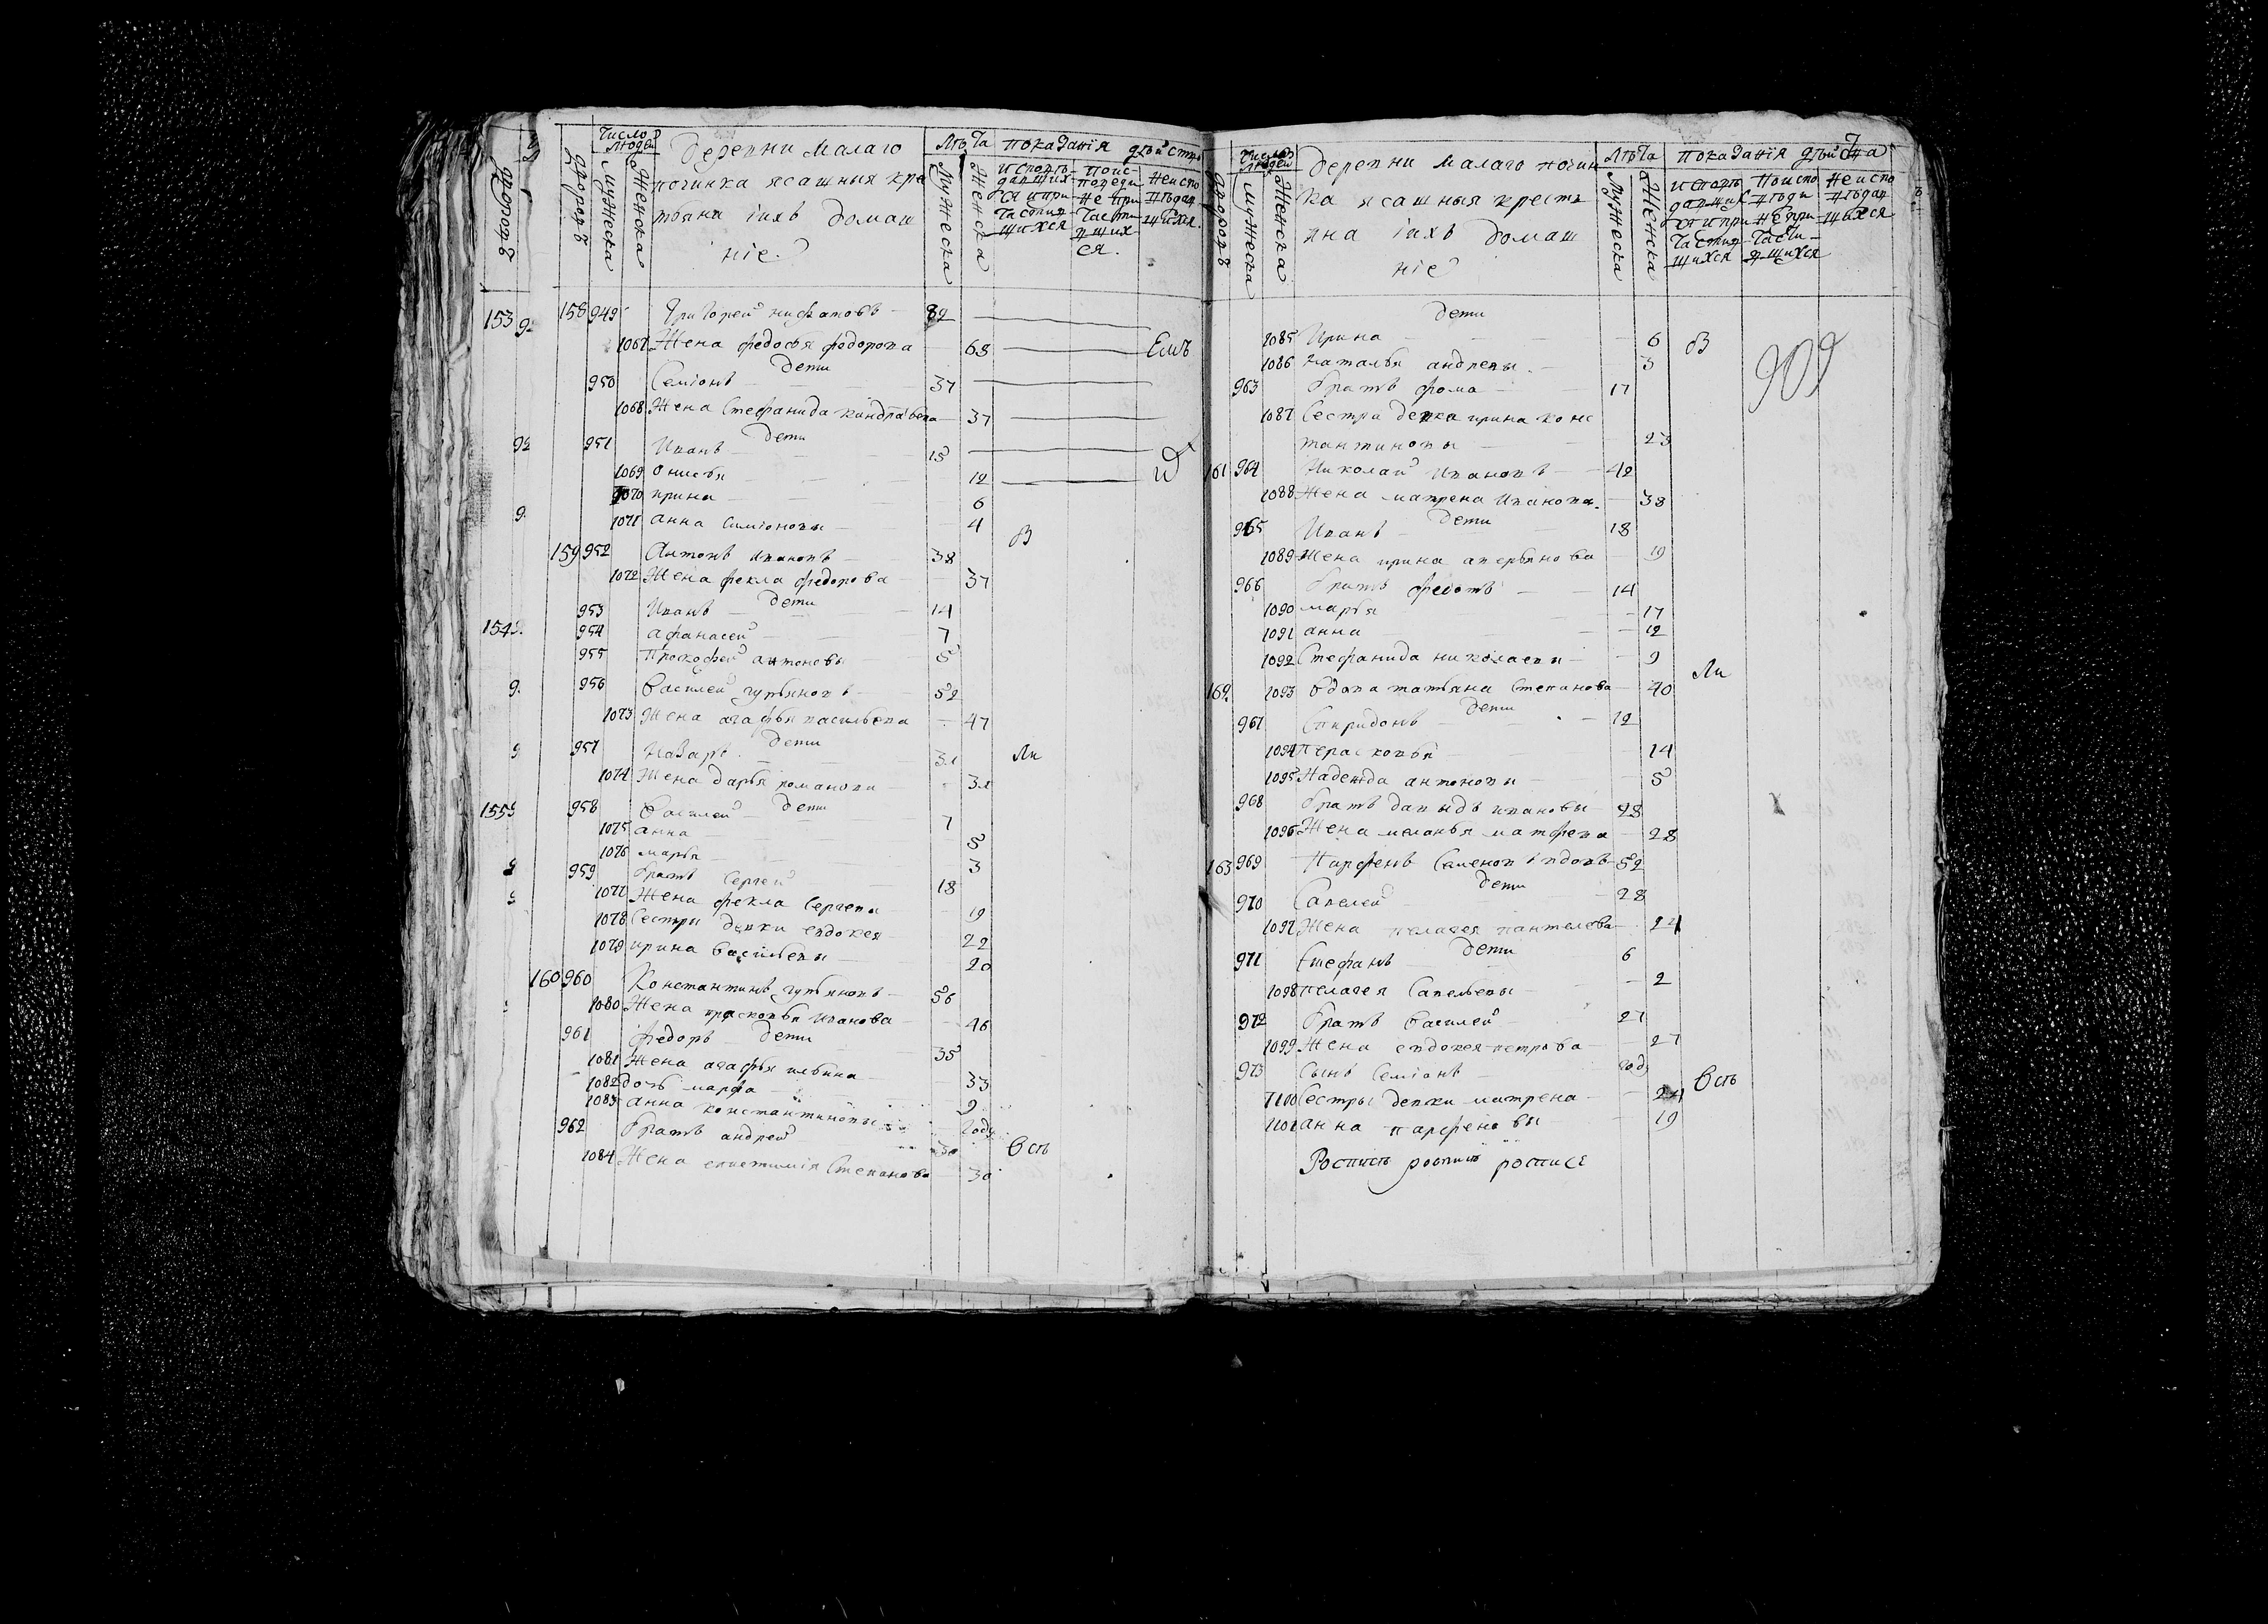 Число людей
дворовъ
дворовъ
мужеска
женска
Деревни Малаго
починка ясашныя кре
стьяна iихъ домаш
нiе
Лѣта
мужеска
женска
показанiя дѣйств
исповѣ
давших
ся ипри
частив
шихся
поис
поведи
не при
части
вших
ся.
неиспо
вѣдав
шихся
153 158 949 Григорей нифатовъ 82
1067 Жена федосья федорова 68
дети
950 Семiонъ 37
1068 Жена Стефанида кандратьева 37
дети
951 Иванъ 15
1069 Онисья 12
1070 ирина 6
1071 анна Симiоновы 4 В
159 952 Антонъ ивановъ 38
1072 Жена фекла федорова 37
дети
953 Иванъ 14
954 афанасей 7
955 Прокофей антоновы 5
956 Василей гурьяновъ 52
1073 Жена агафья васильева 47
дети
957 Назаръ 31 Ли
1074 Жена дарья романова 31
дети
958 Василей 7
1075 анна 5
1076 марья 3
959 братъ Сергей 18
1077 Жена фекла Сергева 19
1078 Сестры девки евдокея 22
1079 ирина Васильевы 20
160 960 Константинъ гурьяновъ 56
1080 Жена прасковья иванова 46
дети
961 федоръ 35
1081 Жена агафья ильина 33
1082 дочь марфа 9
1083 анна константиновы году
962 братъ андрей 30 Всѣ
1084 Жена епистимiя Степанова 30
Число людей
дворовъ
мужеска
женска
Деревни малаго почин
ка ясашныя кресть
яна iихъ домаш
нiе
Лѣта
мужеска
женска
показанiя дѣйства
исповѣ
давших
ся ипри
частив
шихся
поиспо
вѣди
не при
части
вшихся
неиспо
вѣдав
шихся
дети
1085 Ирина 6 В
1086 наталья андревы 3
909
963 братъ фома 17
1087 Сестра девка ирина конс
тантиновы 23
161 964 Николай Ивановъ 42
1088 Жена матрена Иванова 38
дети
965 Иванъ 18
1089 Жена ирина аверьянова 19
966 братъ федотъ 14
1090 марья 17
1091 анна 12
1092 Стефанида николаевы 9 Ли
162 1093 вдова татьяна Степанова 40
дети
967 Спиридонъ 12
1094 перасковья 14
1095 Надежда антоновы 5
968 братъ давыдъ ивановы 28
1096 Жена меланья матфева 28
163 969 Парфенъ Семенов вдовъ 52
дети
970 Савелей 28
1097 Жена пелагея пантелева 24
дети
971 Стефанъ 6
1098 пелагея Савельевы 2
972 братъ Василей 27
1099 Жена евдокея петрова 27
973 Сынъ Семiонъ год Всѣ
1100 Сестры девки матрена 24
1101 анна парфеновы 19
Роспись роспись росписе